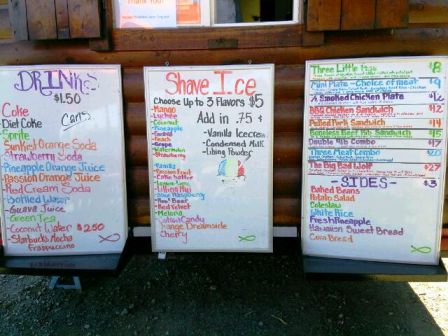 Thank You!
DRINKS
$1.50
Cans
Coke
Diet Coke
Sprite
Sunkist Orange Soda
Strawberry Soda
Pineapple Orange Juice
Passion Orange Juice
Red Cream Soda
Bottled Water
Guava Juice
Green Tea
Coconut Water $2.50
Starbucks Mocha
Frappuccino
Shave Ice
Choose Up to 3 Flavors $5
Add in .75¢
-Vanilla Icecream
-Condensed Milk
-Li hing Powder
Mango
Lychee
Coconut
Pineapple
Peach
Grape
Watermelon
Strawberry
Vanilla
Passion Fruit
Lemon Lime
Li hing Mui
Blue Raspberry
Root Beer
Red Velvet
Melona
Cotton Candy
Orange Dreamsicle
Cherry
Three Little $8
Mini Plate - Choice of meat $12
1/2 Smoked Chicken Plate $16
BBQ Chicken Sandwich $12
Pulled Pork Sandwich $14
Boneless Beef Rib Sandwich
Double Rib Combo $17
Three Meat Combo
The Big Bad Wolf
SIDES- $3
Baked Beans
Potato Salad
Coleslaw
White Rice
Fresh Pineapple
Hawaiian Sweet Bread
Corn Bread